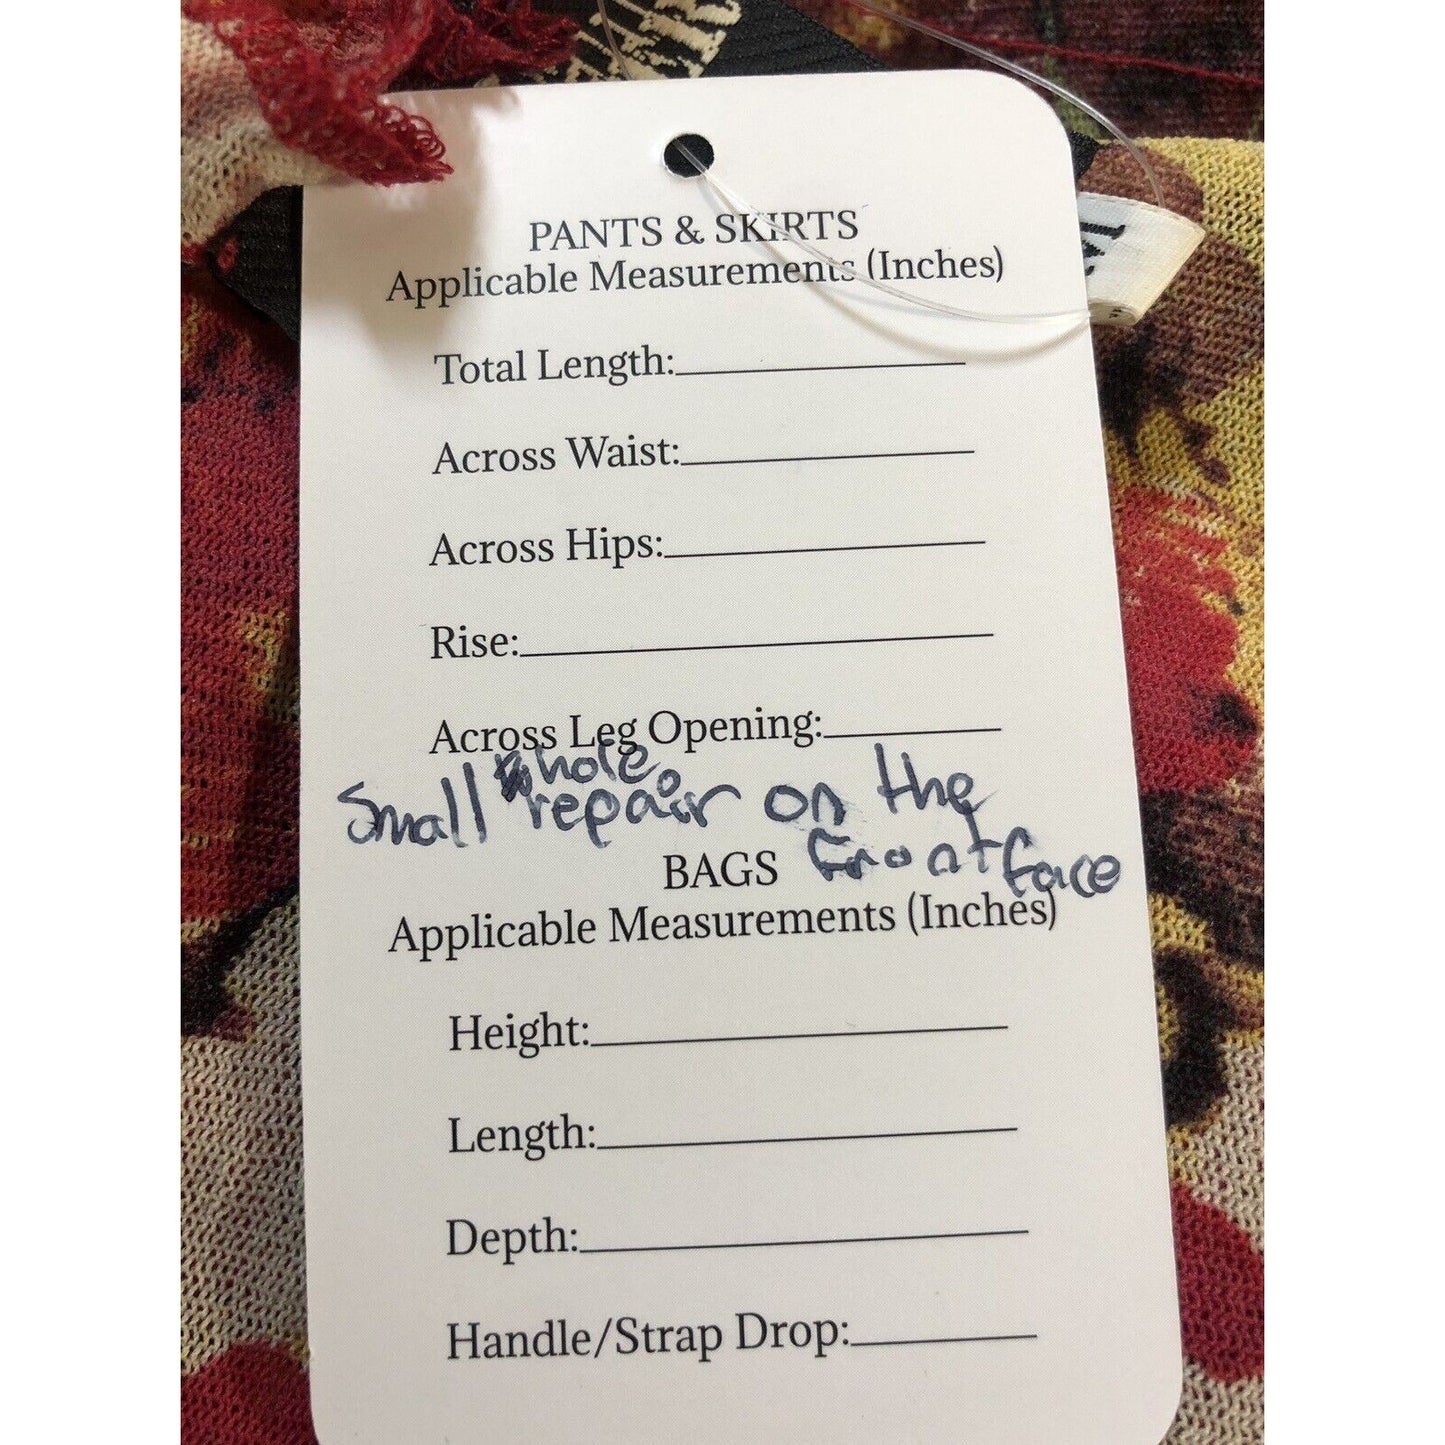 PANTS & SKIRTS
Applicable Measurements (Inches)
Total Length:
Across Waist:
Across Hips:
Rise:
Across Leg Opening:
Small whole repair on the
front face
BAGS
Applicable Measurements (Inches)
Height:
Length:
Depth:
Handle/Strap Drop: